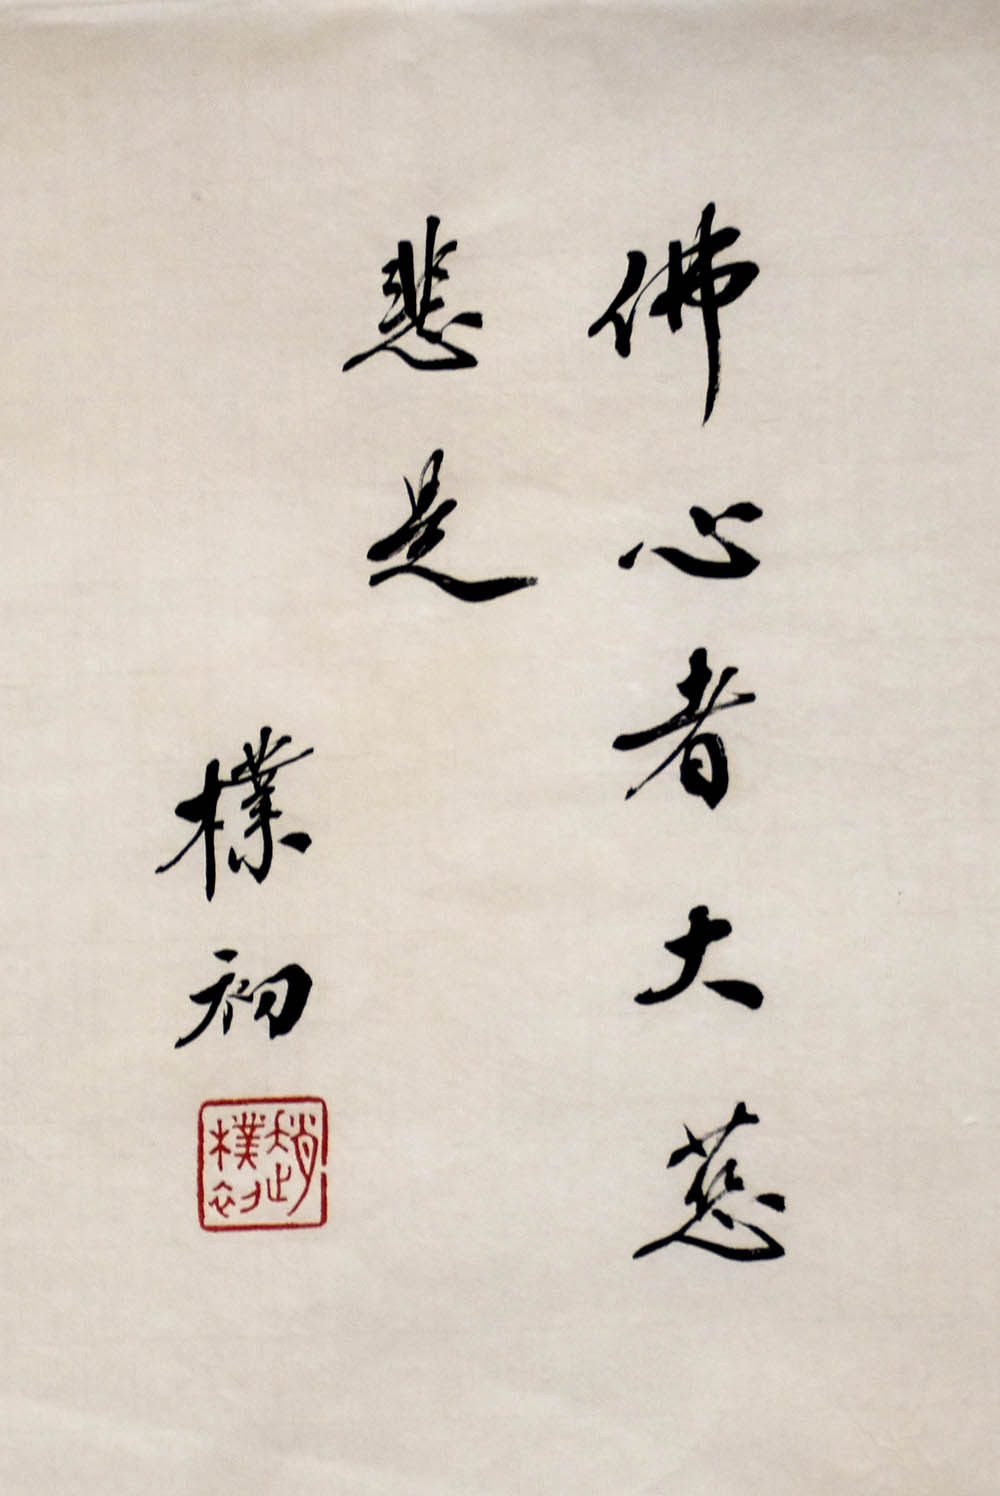 佛心者大慈
悲是
樸初
趙樸初